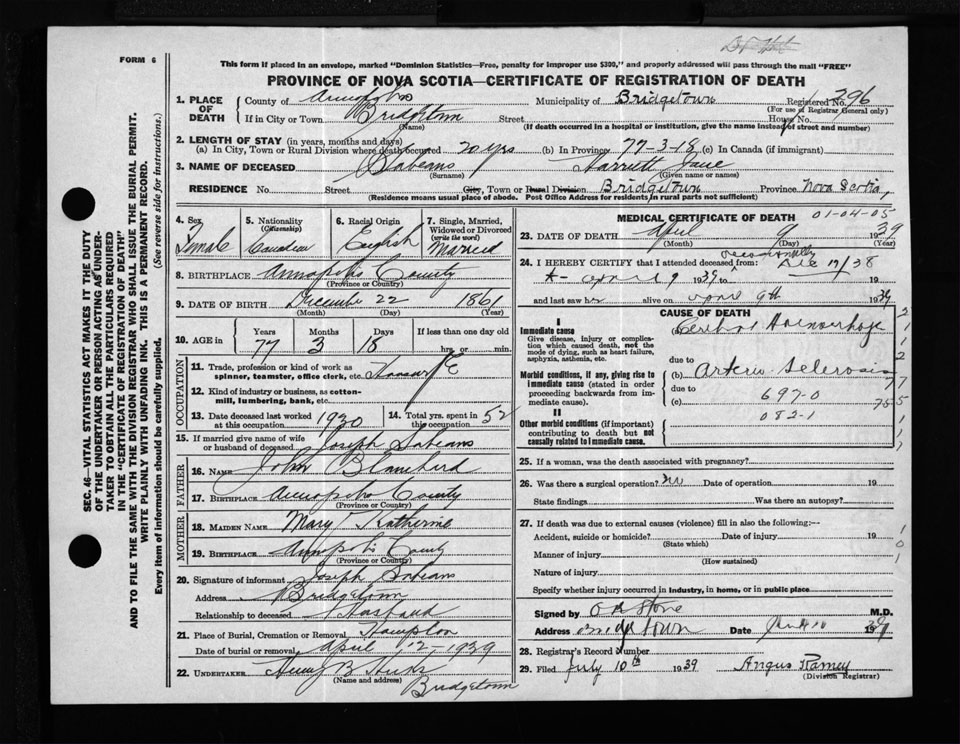 FORM 6
This form if placed in an envelope, marked "Dominion Statistics—Free, penalty for improper use $300," and properly addressed will pass through the mail "FREE"
PROVINCE OF NOVA SCOTIA—CERTIFICATE OF REGISTRATION OF DEATH
1. PLACE OF DEATH { County of Annapolis Municipality of Bridgetown Registered No. 396
(For use of Registrar General only)
If in City or Town Bridgetown Street House No.
(Name) (If death occurred in a hospital or institution, give the name instead of street and number)
2. LENGTH OF STAY (in years, months and days)
(a) In City, Town or Rural Division where death occurred 20 yrs (b) In Province 77-3-18 (c) In Canada (if immigrant)
3. NAME OF DECEASED Sabeans Harriett Jane
(Surname) (Given name or names)
RESIDENCE No. Street City, Town or Rural Division Bridgetown Province Nova Scotia,
(Residence means usual place of abode. Post Office Address for residents in rural parts not sufficient)
4. Sex
Female
5. Nationality
(Citizenship)
Canadian
6. Racial Origin
English
7. Single, Married, Widowed or Divorced
(write the word)
Married
8. BIRTHPLACE Annapolis County
(Province or Country)
9. DATE OF BIRTH December 22 1861
(Month) (Day) (Year)
10. AGE in Years Months Days If less than one day old
77 3 18 hrs. or min.
OCCUPATION
11. Trade, profession or kind of work as spinner, teamster, office clerk, etc. Housewife
12. Kind of industry or business, as cotton-mill, lumbering, bank, etc.
13. Date deceased last worked at this occupation 1930
14. Total yrs. spent in 52
15. If married give name of wife or husband of deceased Joseph Sabeans
FATHER
16. NAME John Blanchard
17. BIRTHPLACE Annapolis County
(Province or Country)
MOTHER
18. MAIDEN NAME Mary Katherine
19. BIRTHPLACE Annapolis County
(Province or Country)
20. Signature of informant Joseph Sabeans
Address Bridgetown
Relationship to deceased Husband
21. Place of Burial, Cremation or Removal Hampton
Date of burial or removal April 12-1939
22. UNDERTAKER B
(Name and address)
Bridgetown
MEDICAL CERTIFICATE OF DEATH 01-04-05
23. DATE OF DEATH April 9 1939
(Month) (Day) (Year)
24. I HEREBY CERTIFY that I attended deceased from: occasionally Dec 19/38
to April 9 1939
and last saw her alive on April 9th 1939
CAUSE OF DEATH
I
Immediate cause
Give disease, injury or complication which caused death, not the mode of dying, such as heart failure, asphyxia, asthenia, etc.
(a) Cerebral Haemorrhage
due to
Morbid conditions, if any, giving rise to immediate cause (stated in order proceeding backwards from immediate cause).
(b) Arterio Sclerosis
due to
(c) 697-0
082-1
II
Other morbid conditions (if important) contributing to death but not causally related to immediate cause.
25. If a woman, was the death associated with pregnancy?
26. Was there a surgical operation? no Date of operation 19
State findings Was there an autopsy?
27. If death was due to external causes (violence) fill in also the following:—
Accident, suicide or homicide? Date of injury 19
(State which)
Manner of injury
(How sustained)
Nature of injury
Specify whether injury occurred in industry, in home, or in public place
Signed by Stone M.D.
Address Bridgetown Date 1939
28. Registrar's Record Number
29. Filed July 10th 1939 Angus Ramey
(Division Registrar)
SEC. 46—VITAL STATISTICS ACT MAKES IT THE DUTY
OF THE UNDERTAKER OR PERSON ACTING AS UNDER-
TAKER TO OBTAIN ALL THE PARTICULARS REQUIRED
IN THE "CERTIFICATE OF REGISTRATION OF DEATH"
AND TO FILE THE SAME WITH THE DIVISION REGISTRAR WHO SHALL ISSUE THE BURIAL PERMIT.
WRITE PLAINLY WITH UNFADING INK. THIS IS A PERMANENT RECORD.
Every item of information should be carefully supplied. (See reverse side for instructions.)